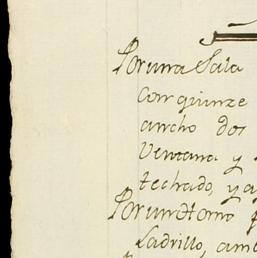 Por una Sala
Con quinze
ancho dos
Ventana y
techado, y a
Por un Horno
Ladrillo, am